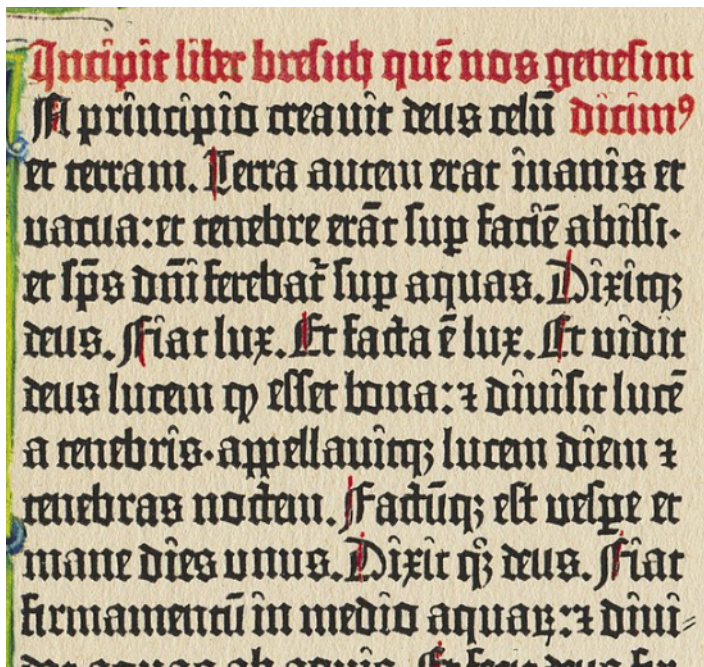 Incipit liber bresith quē nos genesim
A principio creavit deus celū dicimꝰ
et terram. Terra autem erat inanis et
vacua: et tenebre erāt suꝑ faciē abissi.
et sp̄s dn̄i ferebat᷑ suꝑ aquas. Dixitqꝫ
deus. Fiat lux. Et facta ē lux. Et vidit
deus lucem ꝙ esset bona: ⁊ divisit lucē
a tenebris. appellavitqꝫ lucem diem ⁊
tenebras noctem. Factūqꝫ est vesꝑe et
mane dies unus. Dixit qꝫ deus. Fiat
firmamentū in medio aquaꝝ: ⁊ divi⸗